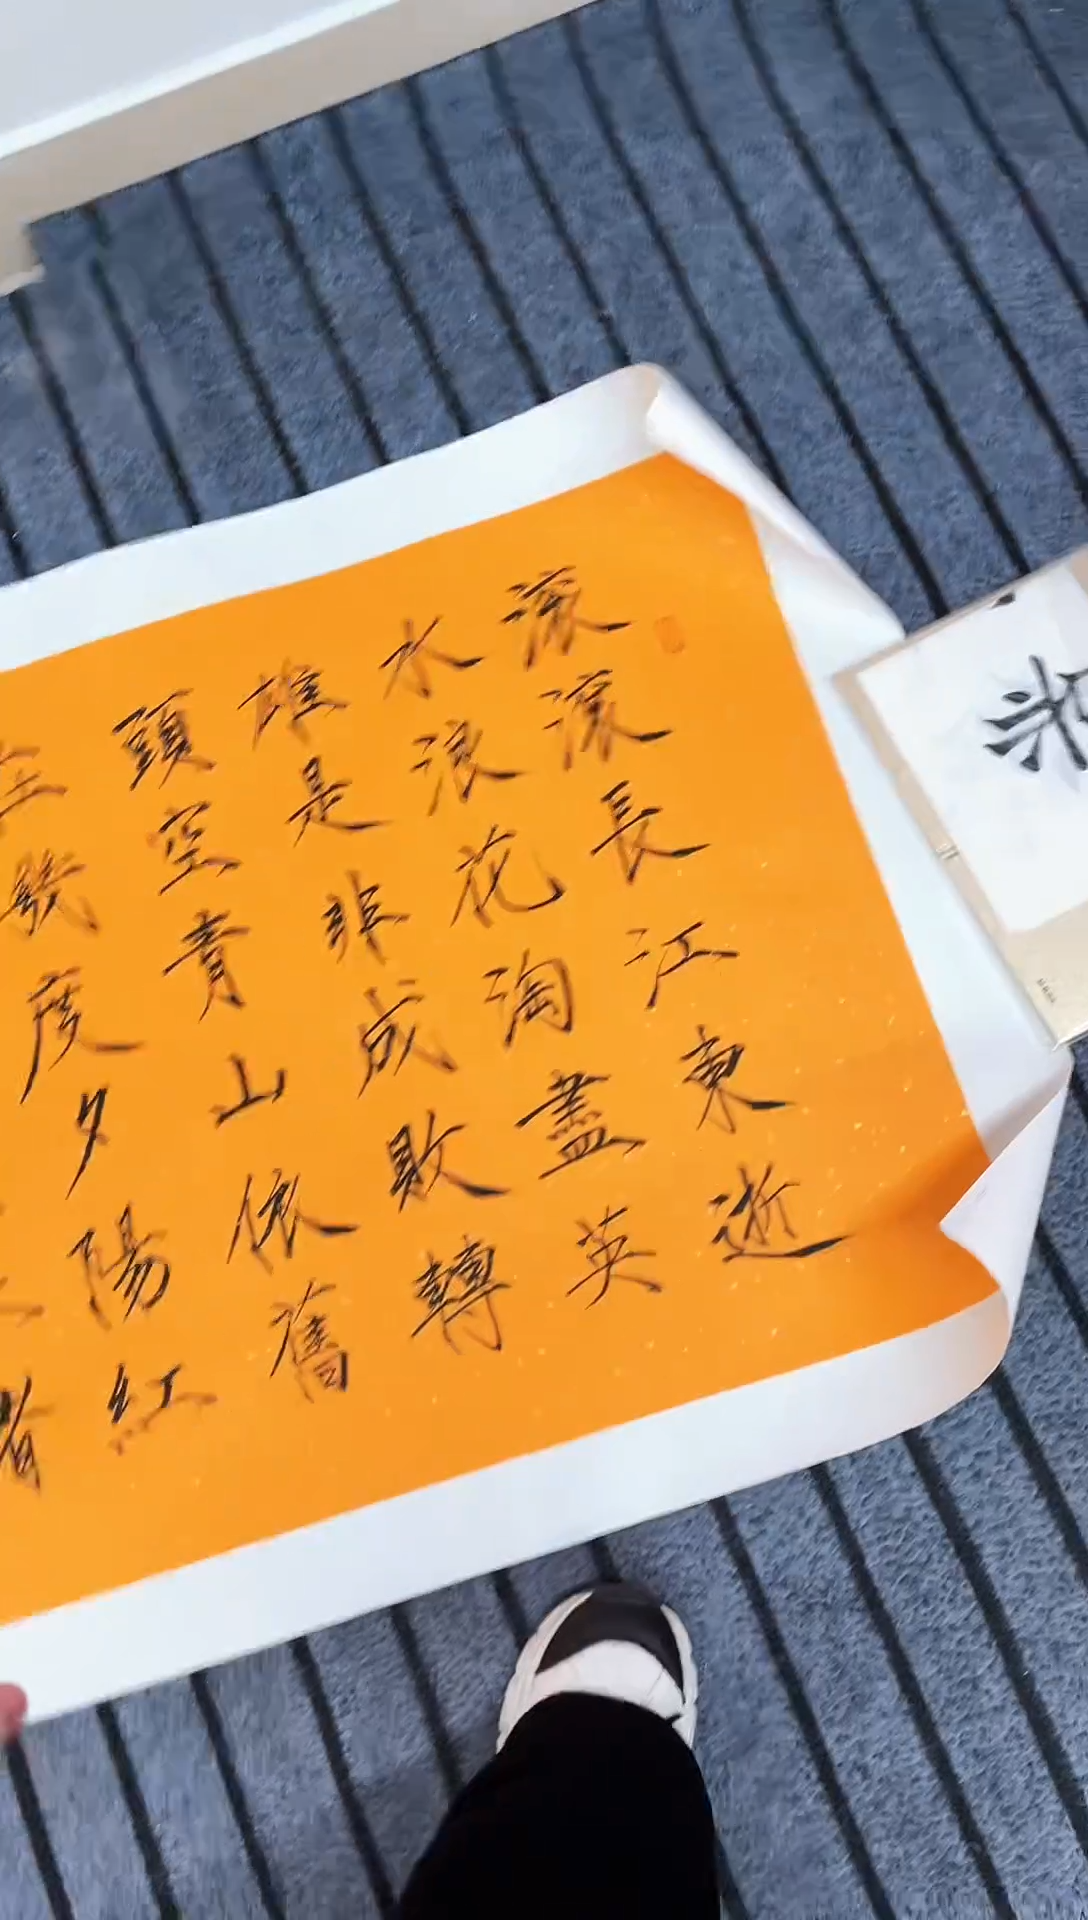 滾滾長江東逝
水浪花淘盡英
雄是非成敗轉
頭空青山依舊
幾度夕陽紅